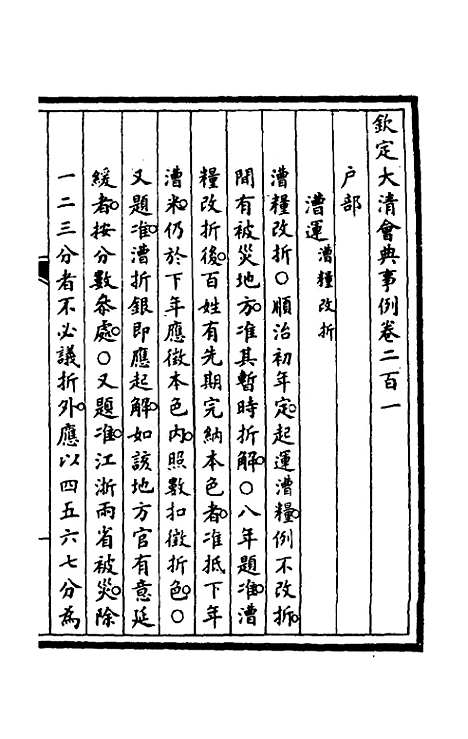 欽定大清會典事例卷二百一
戶部
漕運漕糧改折
漕糧改折〇順治初年定。起運漕糧。例不改折。
間有被災地方。准其暫時折解。〇八年題准。漕
糧改折後。百姓有先期完納本色者。准抵下年
漕米。仍於下年應徵本色內。照數扣徵折色。〇
又題准。漕折銀即應起解。如該地方官有意延
緩者。按分數叅處。〇又題准。江浙兩省被災。除
一二三分者不必議折外。應以四五六七分為